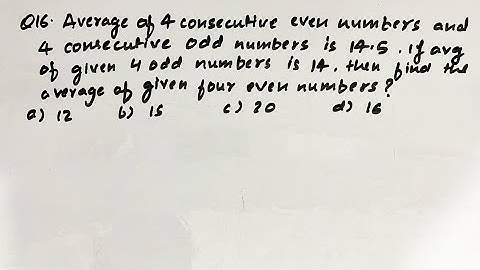 Q16. Average of 4 consecutive even numbers and
4 consecutive odd numbers is 14.5. If avg
of given 4 odd numbers is 14. then find the
average of given four even numbers?
a) 12 b) 15 c) 20 d) 16